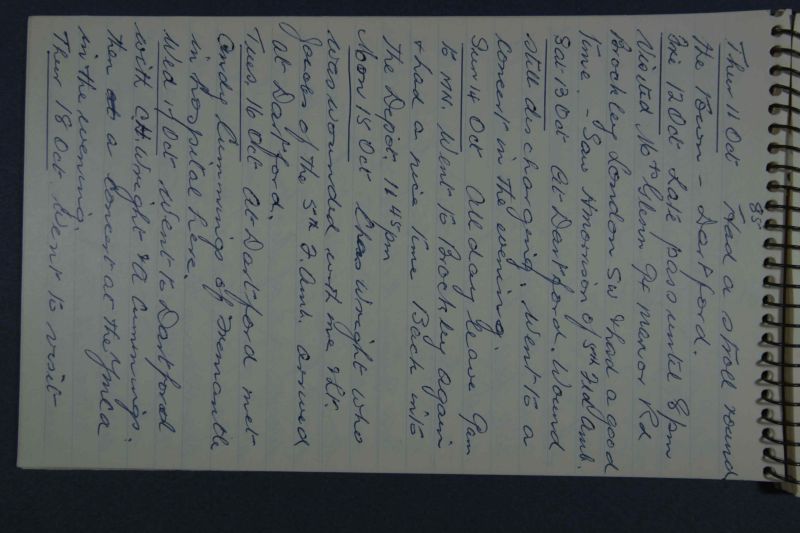 85
Thur 11 Oct Had a stroll round
the Town - Dartford.
Fri 12 Oct Late pass until 8 pm
Visited Mr & Glenn 94 Manor Rd
Brockley London SW & had a good
Time. - Saw A Morrison of 5th Fld Amb.
Sat 13 Oct At Dartford. Wound
still discharging. Went to a
concert in the evening.
Sun 14 Oct All day leave 9am
to MN. Went to Brockley again
& had a nice time Back into
The Depot. 11 45pm
Mon 15 Oct Chas Wright who
was wounded with me &
Jacobs of the 5th F. Amb. arrived
at Dartford.
Tues 16 Oct At Dartford met
Andy Cummings of Fremantle
in hospital here.
Wed 17 Oct Went to Dartford
with CH Wright & A Cummings.
then at a Concert at the YMCA
in the evening.
Thur 18 Oct. Went to visit